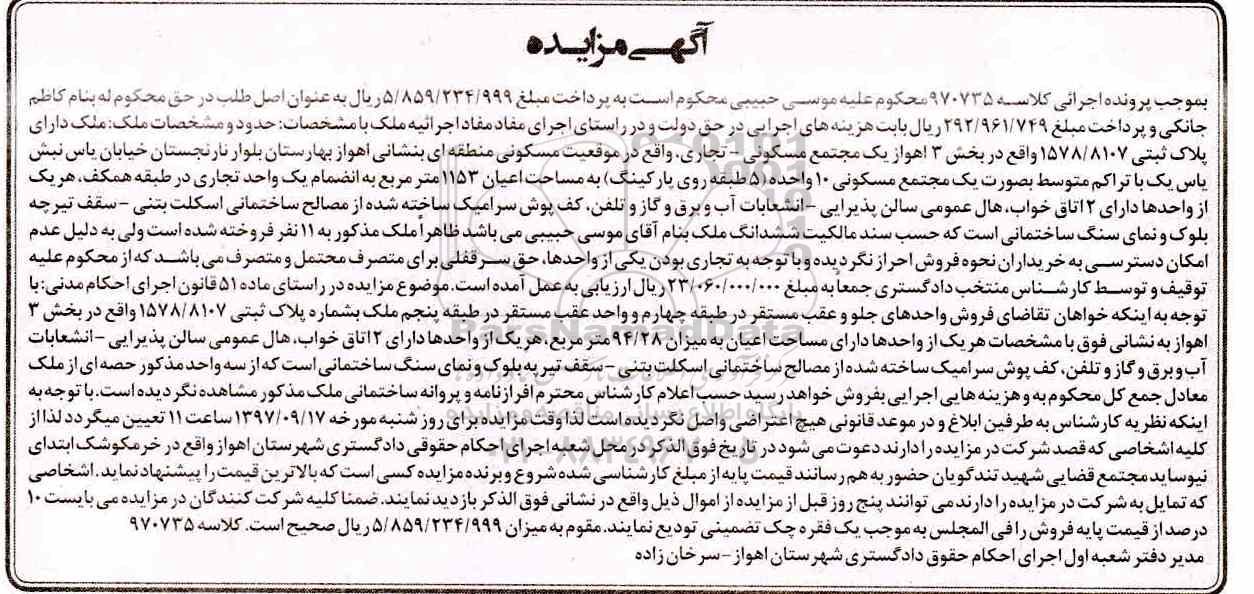 آگهی مزایده
بموجب پرونده اجرائی کلاسه ۹۷۰۷۳۵ محکوم علیه موسی حبیبی محکوم است به پرداخت مبلغ ۵/۸۵۹/۲۳۴/۹۹۹ ریال به عنوان اصل طلب در حق محکوم له بنام کاظم
جانکی و پرداخت مبلغ ۲۹۲/۹۶۱/۷۴۹ ریال بابت هزینه های اجرایی در حق دولت و در راستای اجرای مفاد مفاد اجرائیه ملک با مشخصات: حدود و مشخصات ملک: ملک دارای
پلاک ثبتی ۱۵۷۸/۸۱۰۷ واقع در بخش ۳ اهواز یک مجتمع مسکونی - تجاری، واقع در موقعیت مسکونی منطقه ای بنشانی اهواز بهارستان بلوار نارنجستان خیابان یاس نبش
یاس یک با تراکم متوسط بصورت یک مجتمع مسکونی ۱۰ واحده (۵ طبقه روی پارکینگ) به مساحت اعیان ۱۱۵۳ متر مربع به انضمام یک واحد تجاری در طبقه همکف، هر یک
از واحدها دارای ۲ اتاق خواب، هال عمومی سالن پذیرایی - انشعابات آب و برق و گاز و تلفن، کف پوش سرامیک ساخته شده از مصالح ساختمانی اسکلت بتنی - سقف تیرچه
بلوک و نمای سنگ ساختمانی است که حسب سند مالکیت ششدانگ ملک بنام آقای موسی حبیبی می باشد ظاهراً ملک مذکور به ۱۱ نفر فروخته شده است ولی به دلیل عدم
امکان دسترسی به خریداران نحوه فروش احراز نگردیده و با توجه به تجاری بودن یکی از واحدها، حق سرقفلی برای متصرف محتمل و متصرف می باشد که از محکوم علیه
توقیف و توسط کارشناس منتخب دادگستری جمعاً به مبلغ ۲۳/۰۶۰/۰۰۰/۰۰۰ ریال ارزیابی به عمل آمده است. موضوع مزایده در راستای ماده ۵۱ قانون اجرای احکام مدنی: با
توجه به اینکه خواهان تقاضای فروش واحدهای جلو و عقب مستقر در طبقه چهارم و واحد عقب مستقر در طبقه پنجم ملک بشماره پلاک ثبتی ۱۵۷۸/۸۱۰۷ واقع در بخش ۳
اهواز به نشانی فوق با مشخصات هر یک از واحدها دارای مساحت اعیان به میزان ۹۴/۲۸ متر مربع، هر یک از واحدها دارای ۲ اتاق خواب، هال عمومی سالن پذیرایی - انشعابات
آب و برق و گاز و تلفن، کف پوش سرامیک ساخته شده از مصالح ساختمانی اسکلت بتنی - سقف تیر په بلوک و نمای سنگ ساختمانی است که از سه واحد مذکور حصه ای از ملک
معادل جمع کل محکوم به و هزینه هایی اجرایی بفروش خواهد رسید حسب اعلام کارشناس محترم افرازنامه و پروانه ساختمانی ملک مذکور مشاهده نگردیده است. با توجه به
اینکه نظریه کارشناس به طرفین ابلاغ و در موعد قانونی هیچ اعتراضی واصل نگردیده است لذا وقت مزایده برای روز شنبه مورخه ۱۳۹۷/۰۹/۱۷ ساعت ۱۱ تعیین میگردد لذا از
کلیه اشخاصی که قصد شرکت در مزایده را دارند دعوت می شود در تاریخ فوق الذکر در محل شعبه اجرای احکام حقوقی دادگستری شهرستان اهواز واقع در خرمکوشک ابتدای
نیوساید مجتمع قضایی شهید تندگویان حضور به هم رسانند قیمت پایه از مبلغ کارشناسی شده شروع و برنده مزایده کسی است که بالاترین قیمت را پیشنهاد نماید. اشخاصی
که تمایل به شرکت در مزایده را دارند می توانند پنج روز قبل از مزایده از اموال ذیل واقع در نشانی فوق الذکر بازدید نمایند. ضمنا کلیه شرکت کنندگان در مزایده می بایست ۱۰
درصد از قیمت پایه فروش را فی المجلس به موجب یک فقره چک تضمینی تودیع نمایند. مقوم به میزان ۵/۸۵۹/۲۳۴/۹۹۹ ریال صحیح است. کلاسه ۹۷۰۷۳۵
مدیر دفتر شعبه اول اجرای احکام حقوق دادگستری شهرستان اهواز - سرخان زاده
ParsNamadData